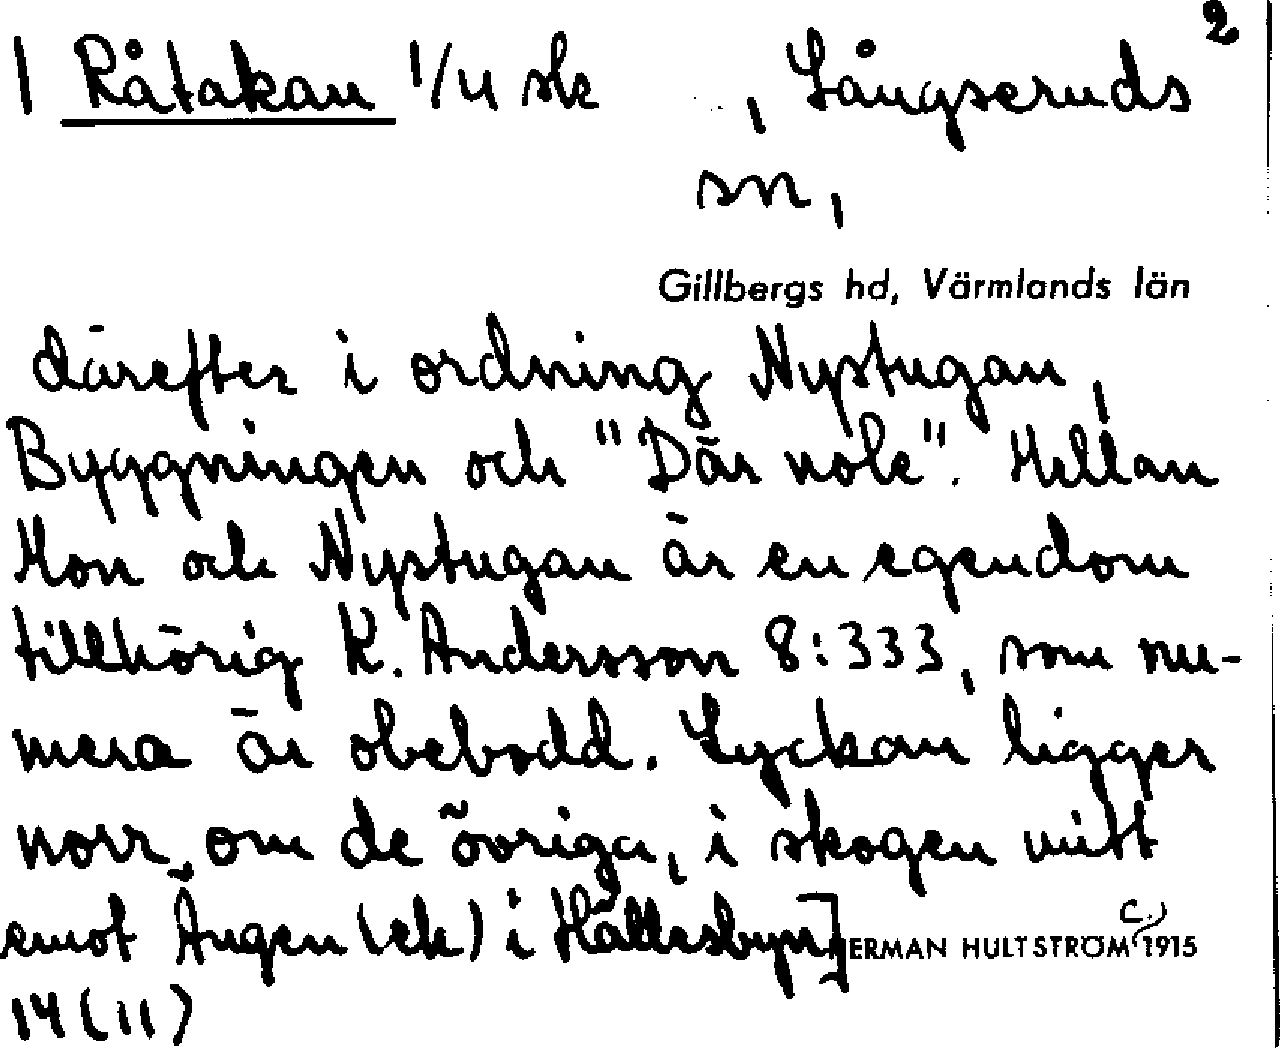 2
1 Råtakan 1/4 sk , Långseruds
sn,
Gillbergs hd, Värmlands län
därefter i ordning Nystugan,
Byggningen och "Där nole". Mellan
Mon och Nystugan är en egendom
tillhörig K. Andersson 8:333, som nu-
mera är obebodd. Lyckan ligger
norr om de övriga, i skogen mitt
emot Ängen (ek) i Hällesbyn]
HERMAN HULTSTRÖM c.) 1915
14 (11)